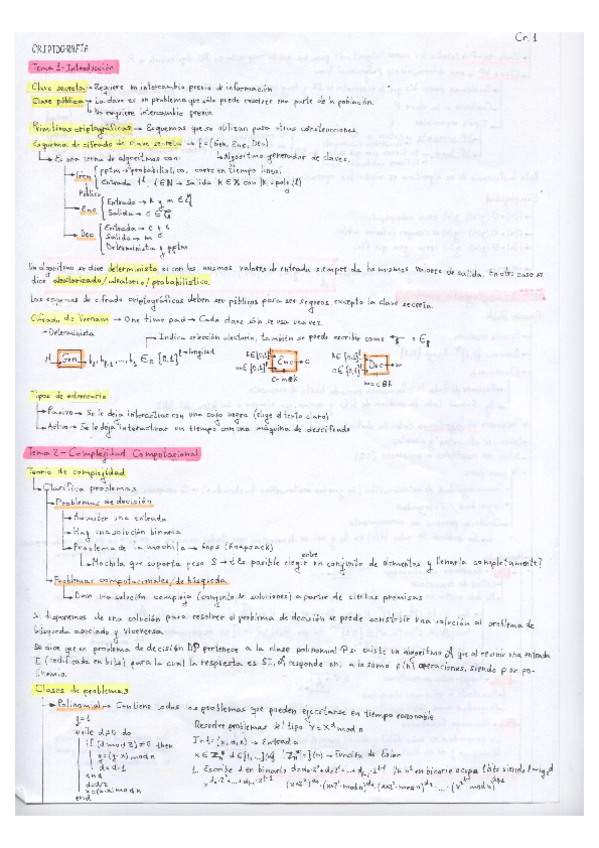 Cr. 1
CRIPTOGRAFÍA
Tema 1 - Introducción
Clave secreta → Requiere un intercambio previo de información
Clave pública → La clave es un problema que sólo puede resolver una parte de la población.
No requiere intercambio previo
Primitivas criptográficas → Esquemas que se utilizan para otras construcciones.
Esquema de cifrado de clave secreta → ξ = (Gen, Enc, Dec)
Es una terna de algoritmos con:
Algoritmo generador de claves.
Gen
pptm → probabilístico, corre en tiempo lineal
Público
Enc
Entrada → k y m ∈
Salida → c ∈
Dec
Entrada → c y k
Salida → m
Determinista y pptm
Un algoritmo se dice determinista si con los mismos valores de entrada siempre da los mismos valores de salida. En otro caso se
dice aleatorizado/aleatorio/probabilístico.
Los esquemas de cifrado criptográficos deben ser públicos para ser seguros, excepto la clave secreta.
Cifrado de Vernam → One time pad → Cada clave sólo se usa una vez.
Determinista
Indica selección aleatoria, también se puede escribir como
longitud
Gen
Enc → c
Dec → m
c = m⊕k
m = c⊕k
Tipos de adversario
Pasivo → Se le deja interactuar con una caja negra (elige el texto claro)
Activo → Se le deja interactuar un tiempo con una máquina de descifrado
Tema 2 - Complejidad Computacional
Teoría de complejidad
Clasifica problemas
Problemas de decisión
Admiten una entrada
Hay una solución binaria
Problema de la mochila → (Knapsack)
Mochila que soporta peso S → ¿Es posible elegir entre un conjunto de elementos y llenarla completamente?
Problemas computacionales/de búsqueda
Dan una solución compleja (conjunto de soluciones) a partir de ciertas premisas
Si disponemos de una solución para resolver el problema de decisión se puede construir una solución al problema de
búsqueda asociado y viceversa.
Se dice que un problema de decisión DP pertenece a la clase polinomial P si existe un algoritmo A que al recibir una entrada
I (codificada en bits) para la cual la respuesta es SÍ, A responde en, a lo sumo p(n) operaciones, siendo p un po-
linomio.
Clases de problemas
Polinomial → Contiene todos los problemas que pueden ejecutarse en tiempo razonable
y=1
while d≠0 do
if (d mod 2)≠0 then
y=(y·x) mod n
d=d-1
end
d=d/2
x=(x·x) mod n
end
Resolver problemas del tipo y = x^d mod n
→ Entrada
→ Función de Euler
1. Escribe d en binario